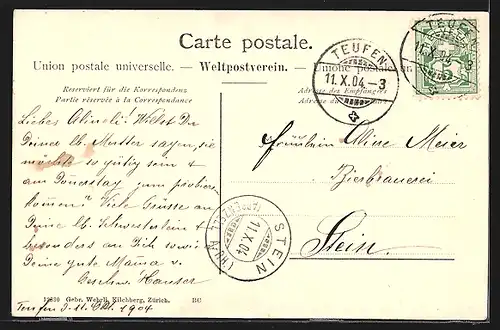 Carte postale.
Union postale universelle. — Weltpostverein. — Unione postale
Reserviert für die Korrespondenz
Partie réservée à la Correspondance
Adresse des Empfängers
Adresse du
TEUFEN
11.X.04-3
TEUFEN
11.X.04-3
Liebes Olineli! Willst Du
Deiner lb. Mutter sagen, sie
möchte so gütig sein &
am Donnerstag zum probieren
kommen? Viele Grüsse an
Deine lb. Schwestern &
besonders an Dich sowie
Deine gute Mama v.
Geschw. Hauser
Fräulein Meier
Bierbrauerei
Stein.
STEIN
11.X.04
(APPENZELL
Gebr. Wehrli, Kilchberg, Zürich.
Teufen d. 11. Okt. 1904.